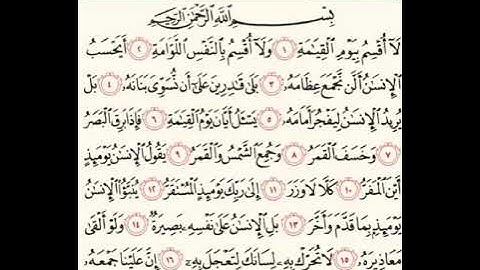 بِسْمِ ٱللَّهِ ٱلرَّحْمَٰنِ ٱلرَّحِيمِ
لَآ أُقْسِمُ بِيَوْمِ ٱلْقِيَٰمَةِ ١ وَلَآ أُقْسِمُ بِٱلنَّفْسِ ٱللَّوَّامَةِ ٢ أَيَحْسَبُ
ٱلْإِنسَٰنُ أَلَّن نَّجْمَعَ عِظَامَهُۥ ٣ بَلَىٰ قَٰدِرِينَ عَلَىٰٓ أَن نُّسَوِّىَ بَنَانَهُۥ ٤ بَلْ
يُرِيدُ ٱلْإِنسَٰنُ لِيَفْجُرَ أَمَامَهُۥ ٥ يَسْـَٔلُ أَيَّانَ يَوْمُ ٱلْقِيَٰمَةِ ٦ فَإِذَا بَرِقَ ٱلْبَصَرُ
٧ وَخَسَفَ ٱلْقَمَرُ ٨ وَجُمِعَ ٱلشَّمْسُ وَٱلْقَمَرُ ٩ يَقُولُ ٱلْإِنسَٰنُ يَوْمَئِذٍ
أَيْنَ ٱلْمَفَرُّ ١٠ كَلَّا لَا وَزَرَ ١١ إِلَىٰ رَبِّكَ يَوْمَئِذٍ ٱلْمُسْتَقَرُّ ١٢ يُنَبَّؤُا۟ ٱلْإِنسَٰنُ
يَوْمَئِذٍۭ بِمَا قَدَّمَ وَأَخَّرَ ١٣ بَلِ ٱلْإِنسَٰنُ عَلَىٰ نَفْسِهِۦ بَصِيرَةٌ ١٤ وَلَوْ أَلْقَىٰ
مَعَاذِيرَهُۥ ١٥ لَا تُحَرِّكْ بِهِۦ لِسَانَكَ لِتَعْجَلَ بِهِۦٓ ١٦ إِنَّ عَلَيْنَا جَمْعَهُۥ